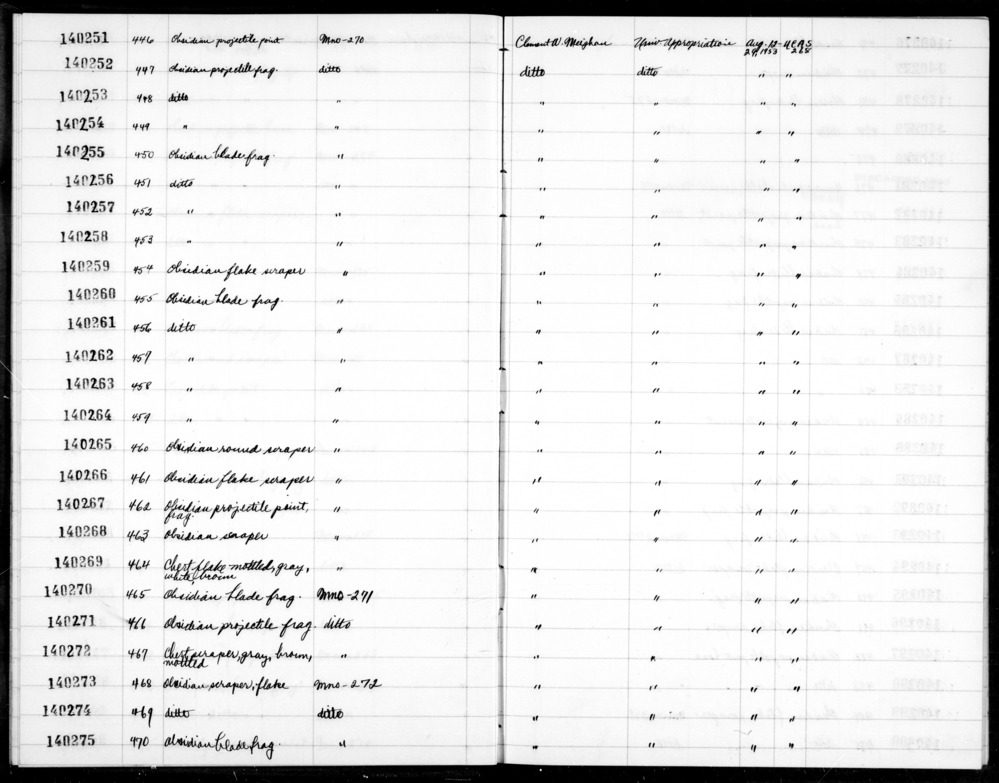 140251 446 Obsidian projectile point Mno-270 Clement W. Meighan Univ Appropriation Aug. 12- UCAS
29, 1953 268
140252 447 Obsidian projectile frag. ditto ditto ditto " "
140253 448 ditto " " " " "
140254 449 " " " " " "
140255 450 Obsidian blade frag. " " " " "
140256 451 ditto " " " " "
140257 452 " " " " " "
140258 453 " " " " " "
140259 454 Obsidian flake scraper " " " " "
140260 455 Obsidian blade frag. " " " " "
140261 456 ditto " " " " "
140262 457 " " " " " "
140263 458 " " " " " "
140264 459 " " " " " "
140265 460 Obsidian round scraper " " " " "
140266 461 Obsidian flake scraper " " " " "
140267 462 Obsidian projectile point, " " " " "
frag.
140268 463 Obsidian scraper " " " " "
140269 464 Chert flake mottled, gray, " " " " "
white, brown
140270 465 Obsidian blade frag. Mno-271 " " " "
140271 466 Obsidian projectile frag. ditto " " " "
140272 467 Chert scraper, gray, brown, " " " " "
mottled
140273 468 Obsidian, scraper, flake Mno-272 " " " "
140274 469 ditto ditto " " " "
140275 470 obsidian blade frag. " " " " "